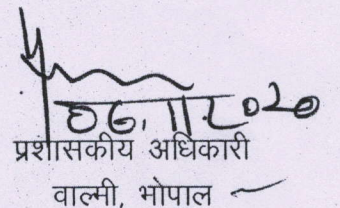 06.11.2020
प्रशासकीय अधिकारी
वाल्मी, भोपाल